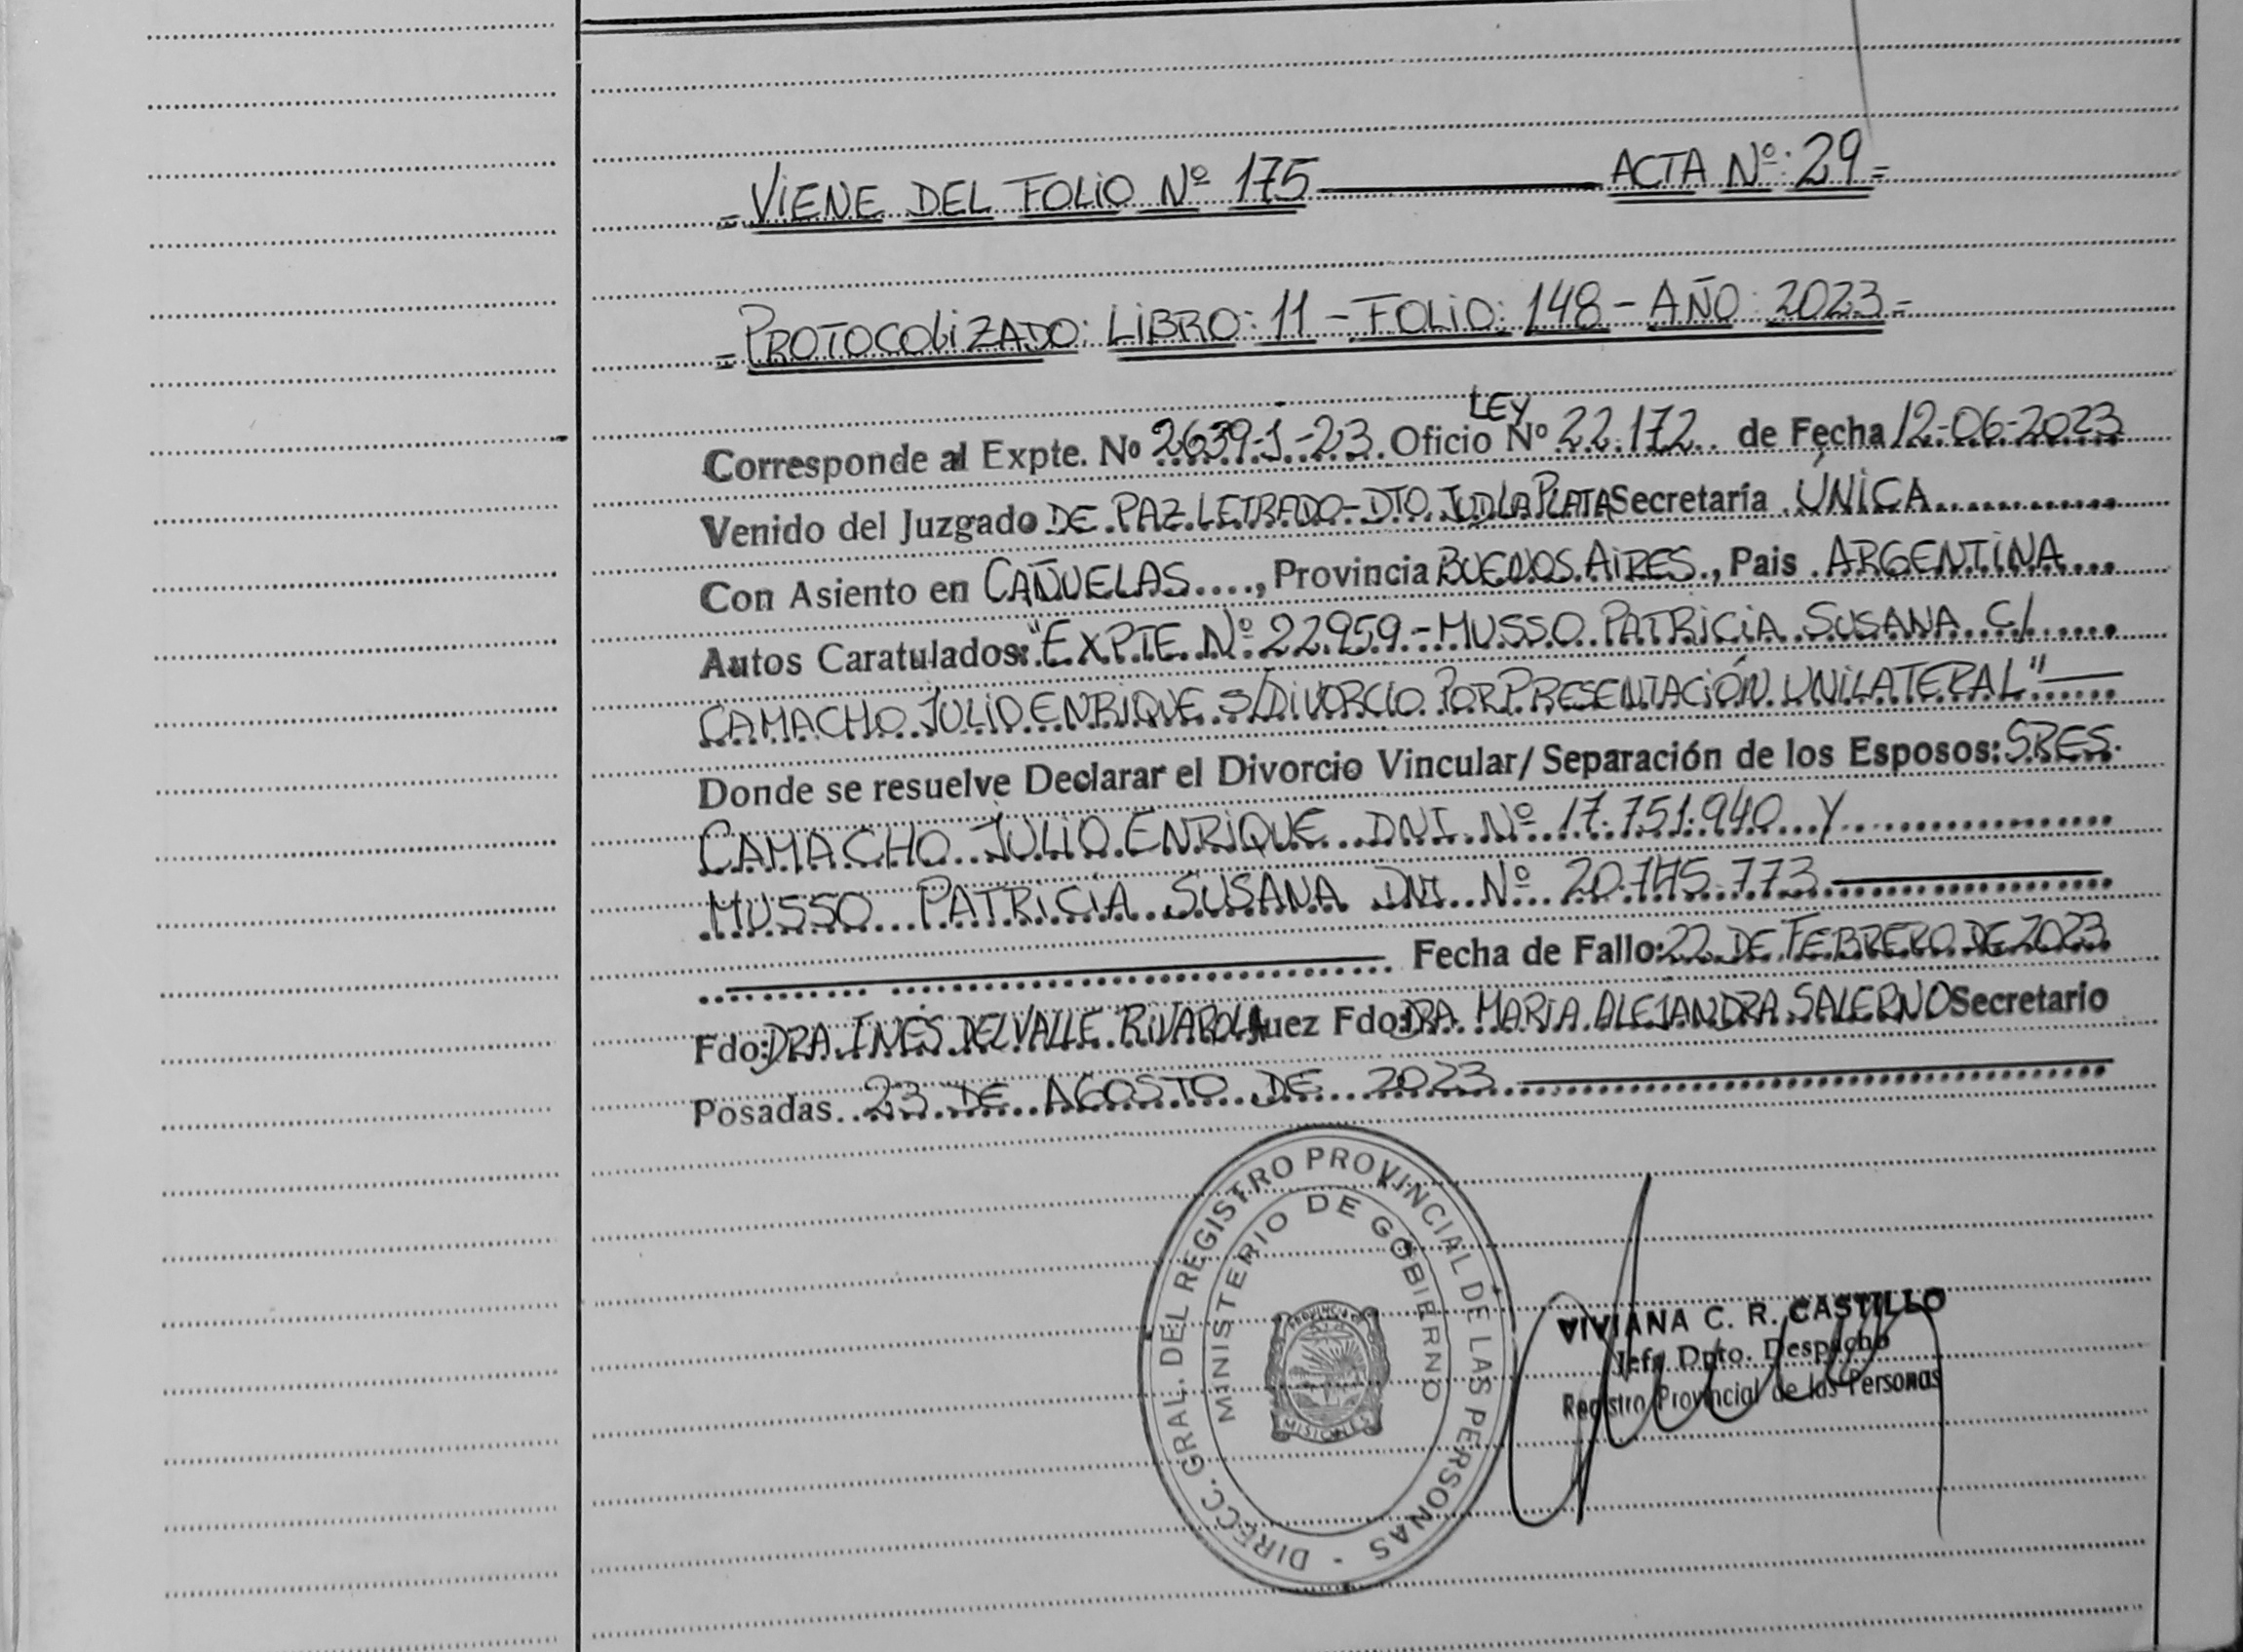 =VIENE DEL FOLIO Nº 175 ACTA Nº: 29=
=PROTOCOLIZADO: LIBRO: 11 - FOLIO: 148 - AÑO: 2023=
LEY
Corresponde al Expte. No 2639-J-23. Oficio Nº 22.172 de Fecha 12-06-2023
Venido del Juzgado DE PAZ LETRADO-DTO JUD LA PLATA Secretaría ÚNICA
Con Asiento en CAÑUELAS, Provincia BUENOS AIRES, Pais ARGENTINA
Autos Caratulados: "EXPTE Nº 22959-MUSSO PATRICIA SUSANA C/
CAMACHO JULIO ENRIQUE S/DIVORCIO POR PRESENTACIÓN UNILATERAL"
Donde se resuelve Declarar el Divorcio Vincular/Separación de los Esposos: SRES.
CAMACHO JULIO ENRIQUE DNI Nº 17.751.940 Y
MUSSO PATRICIA SUSANA DNI Nº
Fecha de Fallo: 22 DE FEBRERO DE 2023
Fdo: DRA. INÉS DEL VALLE RIVAROLA Juez Fdo: DRA. MARIA ALEJANDRA SALERNO Secretario
Posadas 23 DE AGOSTO DE 2023
DIRECC. GRAL. DEL REGISTRO PROVINCIAL DE LAS PERSONAS -
MINISTERIO DE GOBIERNO
PROVINCIA DE
MISIONES
VIVIANA C. R. CASTILLO
Jefa Dpto. Despacho
Registro Provincial de las Personas